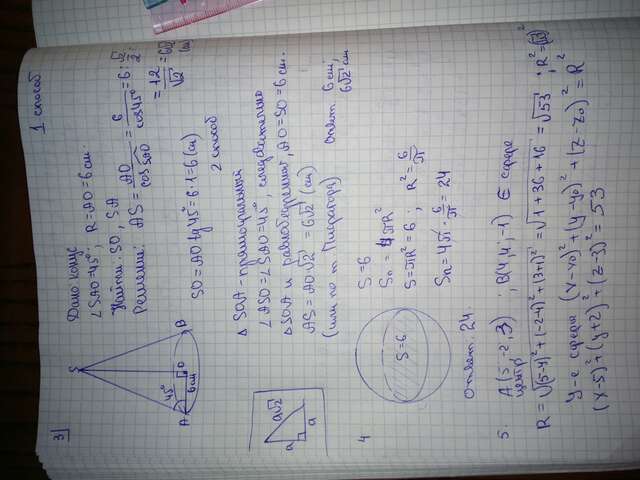 1 способ
3)
Дано: конус
∠SAO=45°, R=AO=6 см.
Найти: SO, SA
Решение: AS = AO/cos SAO = 6/cos45° = 6 : √2/2 =
= 12/√2 = 6√2 (см)
SO = AO tg45° = 6·1 = 6 (см)
2 способ
△SOA - прямоугольный
∠ASO = ∠SAO = 45°, следовательно
△SOA и равнобедренный, AO = SO = 6 см.
AS = AO√2 = 6√2 (см)
(или по т. Пифагора)
Ответ: 6 см,
6√2 см
S
A
O
B
45°
6 см
a√2
a
a
4
S=6
S=6
Sп = 4πR²
S = πR² = 6; R² = 6/π
Sп = 4π · 6/π = 24
Ответ. 24.
5. A(5;-2;3) ; B(4;4;-1) ∈ сфере
центр
R = √(5-4)²+(-2-4)²+(3+1)² = √1+36+16 = √53 ; R²=(√53)²
У-е сферы (x-x₀)²+(y-y₀)²+(z-z₀)² = R²
(x-5)²+(y+2)²+(z-3)² = 53